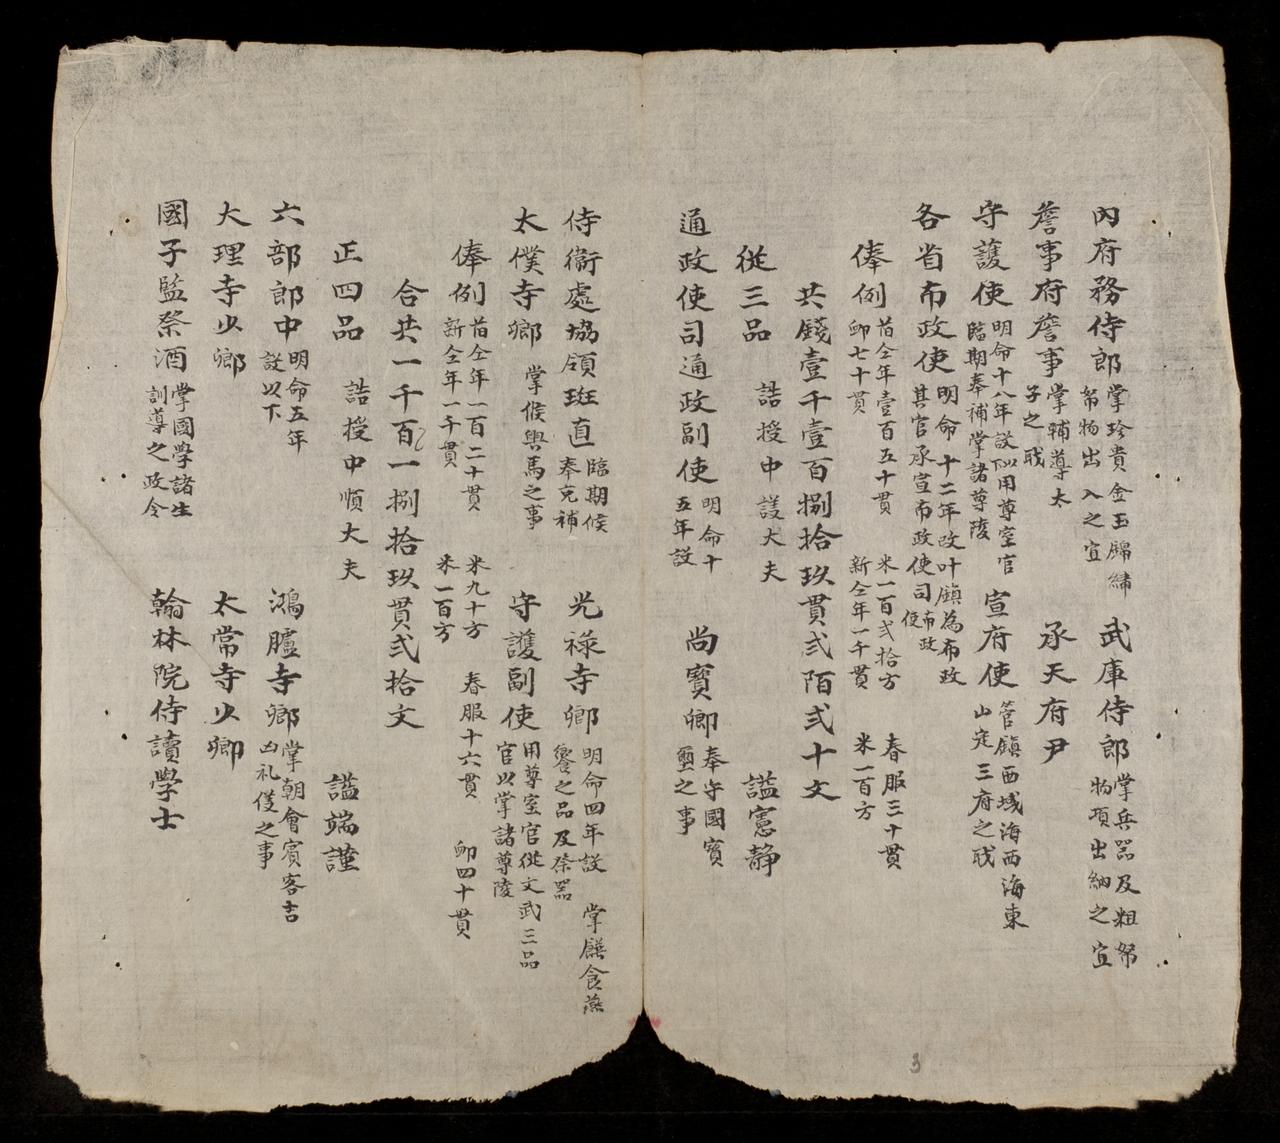 內府務侍郎 掌珍貴金玉錦繡帑物出入之宜 武庫侍郎 掌兵器及粗帑物項出納之宜
詹事府詹事 掌輔導太子之职 承天府尹
守護使 明命十八年設以下用尊室官臨期奉補掌諸尊陵 宣府使 管鎮西域海西海東山定三府之职
各省布政使 明命十二年改叶鎮為布政其官承宣布政使司布政使
俸例 昔仝年壹百五十貫 米一百弍拾方 春服三十貫 卹七十貫 新仝年一千貫 米一百方
共錢壹千壹百捌拾玖貫弍陌弍十文
從三品 誥授中護大夫 謚憲静
通政使司通政副使 明命十五年設 尚寳卿 奉守國寳璽之事
侍衞處協領班直 臨期候奉充補 光祿寺卿 明命四年設 掌饍食燕饗之品及祭器
太僕寺卿 掌候輿馬之事 守護副使 用尊室官從文武三品官以掌諸尊陵
俸例 昔仝年一百二十貫 米九十方 春服十六貫 卹四十貫 新仝年一千貫 米一百方
合共一千百一捌拾玖貫弍拾文
正四品 誥授中順大夫 謚端謹
六部郎中 明命五年設以下 鴻臚寺卿 掌朝會賓客吉凶礼仪之事
大理寺少卿 太常寺少卿
國子監祭酒 掌國學諸生訓導之政令 翰林院侍讀學士
3